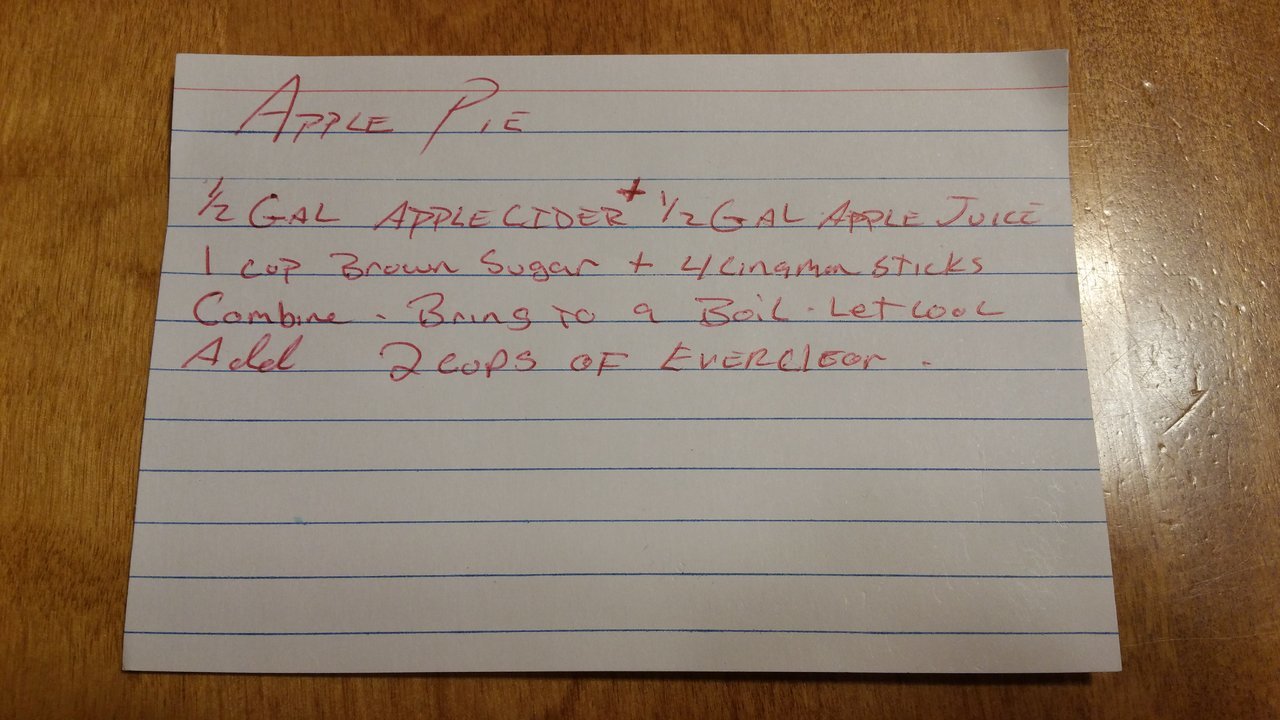 Apple Pie
1/2 Gal Apple Cider + 1/2 Gal Apple Juice
1 cup Brown Sugar + 4 Cinamon Sticks
Combine . Bring to a Boil . Let cool
Add 2 cups of Everclear .